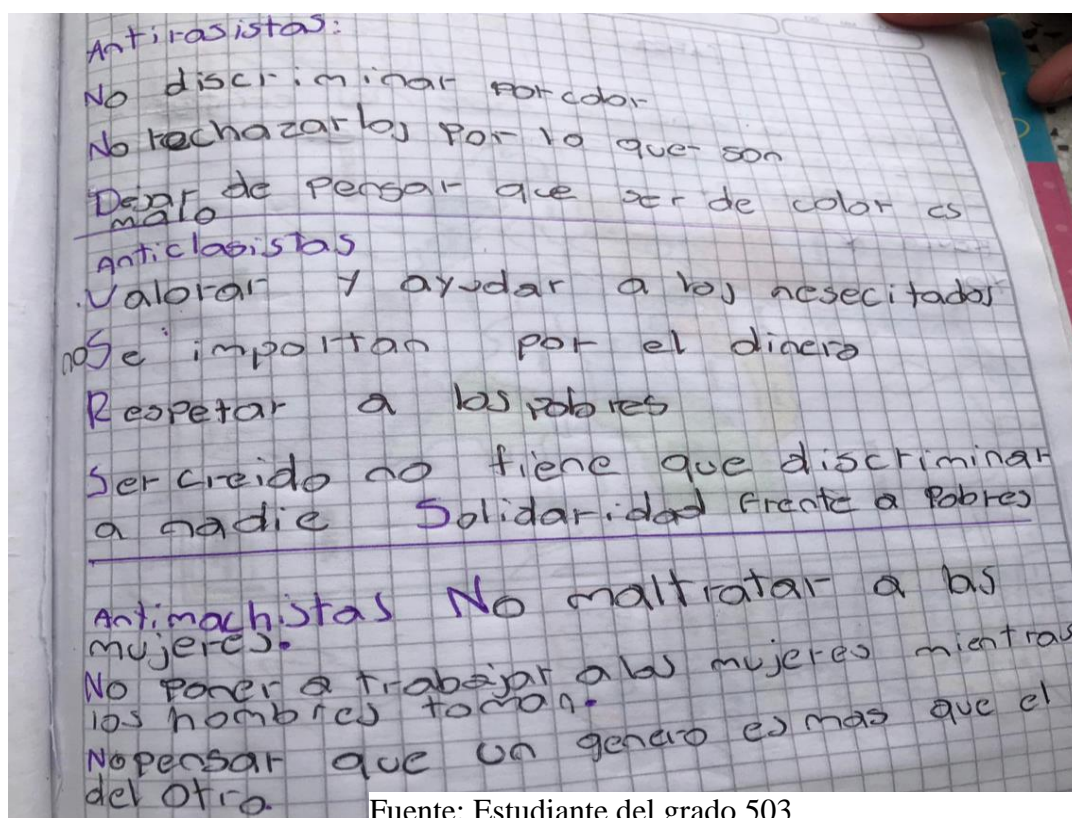 Antirasistas:
No discriminar por color
No rechazarlos por lo que son
Dejar de pensar que ser de color es
malo
Anticlasistas
.Valorar y ayudar a los nesecitados
no Se importan por el dinero
Respetar a los pobres
Ser creido no tiene que discriminar
a nadie Solidaridad frente a Pobres
Antimachistas No maltratar a las
mujeres.
No poner a trabajar a las mujeres mientras
los hombres toman.
No pensar que un genero es mas que el
del otro.
Fuente: Estudiante del grado 503